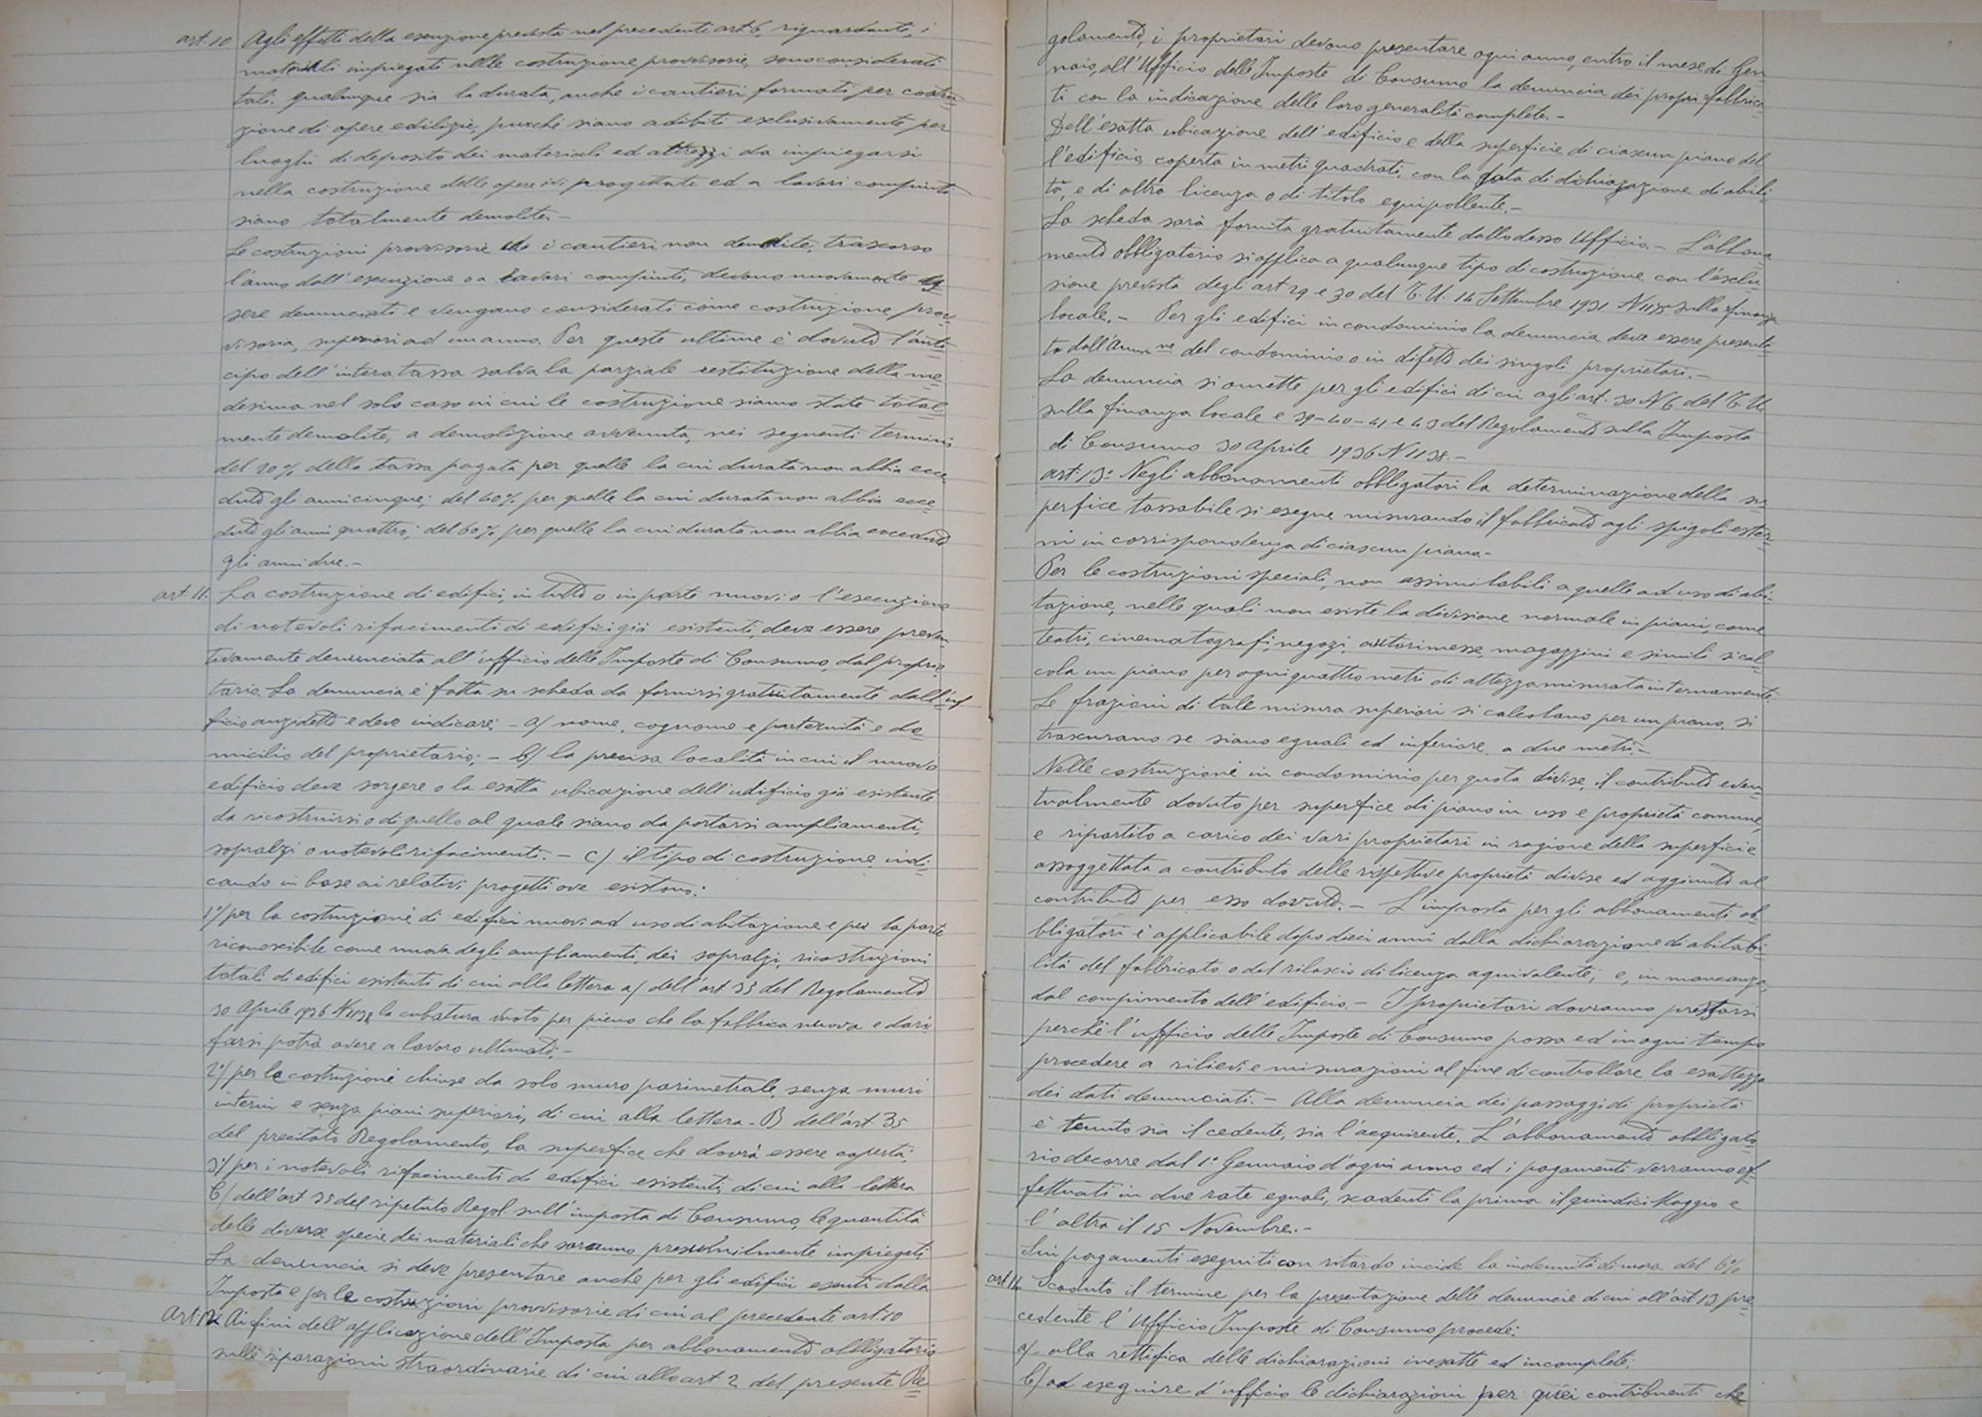 art. 10 Agli effetti della esenzione prevista nel precedente art. 6, riguardante, i
materiali impiegati nelle costruzione provvisorie, sono considerati
tali, qualunque sia la durata, anche i cantieri formati per costru-
zione di opere edilizie, purché siano adibiti esclusivamente per
luoghi di deposito dei materiali ed attrezzi da impiegarsi
nella costruzione delle opere ivi progettate ed a lavori compiuti
siano totalmente demolite.-
Le costruzioni provvisorie che i cantieri non demolite, trascorso
l'anno dall'esecuzione o a lavori compiuti, devono nuovamente es-
sere denunciati e vengano considerati come costruzione prov-
visoria, superiori ad un anno. Per queste ultime è dovuto l'anti-
cipo dell'intera tassa salva la parziale restituzione della me-
desima nel solo caso in cui le costruzione siano state total-
mente demolite, a demolizione avvenuta, nei seguenti termini,
del 20% della tassa pagata per quelle la cui durata non abbia ecce-
duto gli anni cinque; del 40% per quelle la cui durata non abbia ecce-
duto gli anni quattro; del 60% per quelle la cui durata non abbia ecceduto
gli anni due.-
art. 11. La costruzione di edifici, in tutto o in parte nuovi o l'esecuzione
di notevoli rifacimenti di edifici già esistenti, deve essere preven-
tivamente denunciata all'ufficio delle Imposte di Consumo, dal proprie-
tario. La denuncia è fatta su scheda da fornirsi gratuitamente dall'uf-
ficio anzidetto e deve indicare; - a/ nome, cognome e paternità e do-
micilio del proprietario; - b/ la precisa località in cui il nuovo
edificio deve sorgere o la esatta ubicazione dell'edificio già esistente
da ricostruirsi o di quello al quale siano da portarsi ampliamenti,
sopralzi o notevoli rifacimenti. - c/ il tipo di costruzione indi-
cando in base ai relativi progetti ove esistono:
1°/ per la costruzione di edifici nuovi ad uso di abitazione e per la parte
riconoscibile come nuova degli ampliamenti, dei sopralzi, ricostruzioni
totali di edifici esistenti di cui alla lettera a/ dell'art 35 del Regolamento
30 Aprile 1936 N 1138 la cubatura vuoto per pieno che la fabbrica nuova e da ri
farsi potrà avere a lavoro ultimato;-
2°/ per le costruzione chiuse da solo muro perimetrale, senza muri
interni e senza piani superiori, di cui alla lettera - B dell'art 35
del precitato Regolamento, la superfice che dovrà essere coperta;
3°/ per i notevoli rifacimenti di edifici esistenti, di cui alla lettera
C/ dell'art 35 del ripetuto Regol. sull'imposta di Consumo, le quantità
delle diverse specie dei materiali che saranno presumibilmente impiegati,
La denuncia si deve presentare anche per gli edifici esenti dalla
Imposta e per le costruzioni provvisorie di cui al precedente art. 10
Art 12 Ai fini dell'applicazione dell'Imposta per abbonamento obbligatorio
sulle riparazioni straordinarie di cui allo art 2 del presente Re-
golamento, i proprietari devono presentare ogni anno, entro il mese di Gen
naio, all'Ufficio delle Imposte di Consumo la denuncia dei propri fabbrica-
ti con la indicazione delle loro generalità complete.-
Dell'esatta ubicazione dell'edificio e della superficie di ciascun piano del
l'edificio, coperta in metri quadrati, con la data di dichiarazione di abili-
tà, e di altra licenza o di titolo equipollente.-
La scheda sarà fornita gratuitamente dallo stesso Ufficio.- L'abbona-
mento obbligatorio si applica a qualunque tipo di costruzione con l'esclu-
sione prevista degli art 29 e 30 del T. U. 14 Settembre 1931 N 1175 sulla finanza
locale.- Per gli edifici in condominio la denuncia deve essere presenta-
ta dall'Amm.ne del condominio o in difetto dei singoli proprietari.-
La denuncia si omette per gli edifici di cui agli art. 30 N 6 del T. U.
sulla finanza locale e 39-40-41 e 43 del Regolamento sulla Imposta
di Consumo 30 Aprile 1936 N 1138.-
art. 13: Negli abbonamenti obbligatori la determinazione della su
perfice tassabile si esegue misurando il fabbricato agli spigoli ester-
ni in corrispondenza di ciascun piano.-
Per le costruzioni speciali, non assimilabili a quelle ad uso di abi-
tazione, nelle quali non esiste la divisione normale in piani, come
teatri, cinematografi, negozi, autorimesse, magazzini e simili si cal-
cola un piano per ogni quattro metri di altezza misurata internamente.
Le frazioni di tale misura superiori si calcolano per un piano, si
trascurano se siano eguali ed inferiore a due metri.-
Nelle costruzione in condominio per quota divise, il contributo even-
tualmente dovuto per superfice di piano in uso e proprietà comune,
e ripartito a carico dei vari proprietari in ragione della superficie
assoggettata a contributo delle rispettive proprietà divise ed aggiunto al
contributo per esso dovuto.- L'imposta per gli abbonamenti ob
bligatori è applicabile dopo dieci anni dalla dichiarazione di abitabi-
lità del fabbricato o del rilascio di licenza equivalente; e, in mancanza,
dal compimento dell'edificio.- I proprietari dovranno prestarsi
perché l'ufficio delle Imposte di Consumo possa ed in ogni tempo
procedere a rilievi e misurazioni al fine di controllare la esattezza
dei dati denunciati.- Alla denuncia dei passaggi di proprietà
è tenuto sia il cedente, sia l'acquirente. L'abbonamento obbligato-
rio decorre dal 1° Gennaio d'ogni anno ed i pagamenti verranno ef-
fettuati in due rate eguali, scadenti la prima il quindici Maggio e
l'altra il 15 Novembre.-
Sui pagamenti eseguiti con ritardo incide la indennità di mora del 6%
art 14 Scaduto il termine per la presentazione delle denuncie di cui all'art. 13 pre-
cedente l'Ufficio Imposte di Consumo procede;
a/ alla rettifica delle dichiarazioni inesatte ed incomplete;
b/ ad eseguire d'ufficio le dichiarazioni per quei contribuenti che